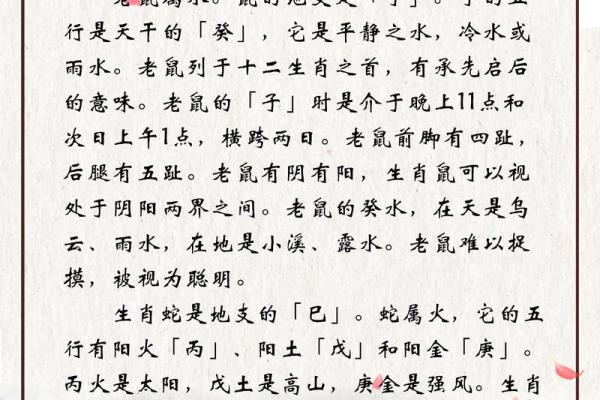 老鼠属水。鼠的地支是「子」。子的五
行是天干的「癸」，它是平静之水，冷水或
雨水。老鼠列于十二生肖之首，有承先启后
的意味。老鼠的「子」时是介于晚上11点和
次日上午1点，横跨两日。老鼠前脚有四趾，
后腿有五趾。老鼠有阴有阳，生肖鼠可以视
处于阴阳两界之间。老鼠的癸水，在天是乌
云、雨水，在地是小溪、露水。老鼠难以捉
摸，被视为聪明。
生肖蛇是地支的「巳」。蛇属火，它的五
行有阳火「丙」、阳土「戊」和阳金「庚」。
丙火是太阳，戊土是高山，庚金是强风。生肖